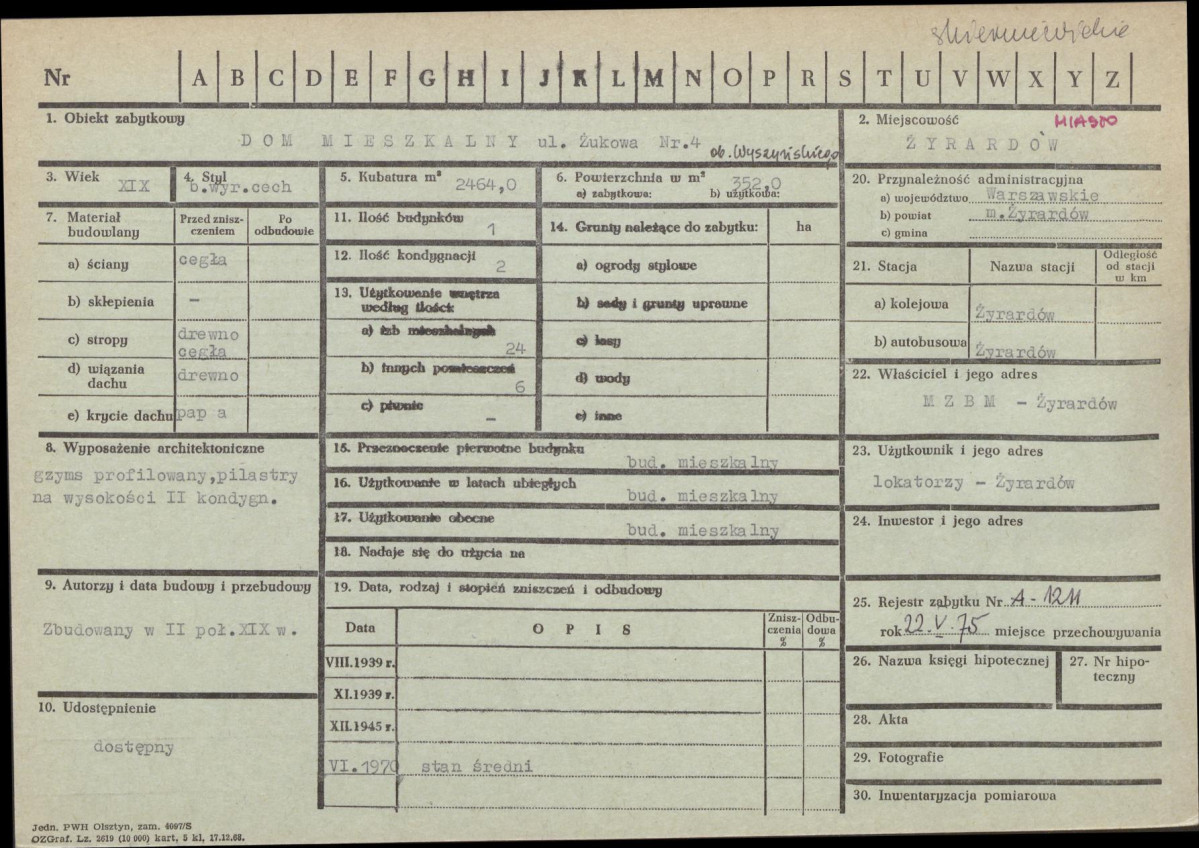 skierniewickie
Nr A B C D E F G H I J K L M N O P R S T U V W X Y Z
1. Obiekt zabytkowy
DOM MIESZKALNY ul. Żukowa Nr.4 ob. Wyszyńskiego
2. Miejscowość MIASTO
ŻYRARDÓW
3. Wiek XIX
4. Styl
b.wyr.cech
5. Kubatura m³ 2464,0
6. Powierzchnia w m² 352,0
a) zabytkowa: b) użytkowa:
7. Materiał budowlany
Przed zniszczeniem
Po odbudowie
a) ściany cegła
b) sklepienia –
c) stropy drewno
cegła
d) wiązania dachu drewno
e) krycie dachu pap a
8. Wyposażenie architektoniczne
gzyms profilowany,pilastry
na wysokości II kondygn.
9. Autorzy i data budowy i przebudowy
Zbudowany w II poł.XIX w.
10. Udostępnienie
dostępny
11. Ilość budynków
1
12. Ilość kondygnacji
2
13. Użytkowanie wnętrza
według ilości:
a) izb mieszkalnych
24
b) innych pomieszczeń
6
c) piwnic
–
14. Grunty należące do zabytku: ha
a) ogrody stylowe
b) sady i grunty uprawne
c) lasy
d) wody
e) inne
15. Przeznaczenie pierwotne budynku
bud. mieszkalny
16. Użytkowanie w latach ubiegłych
bud. mieszkalny
17. Użytkowanie obecne
bud. mieszkalny
18. Nadaje się do użycia na
19. Data, rodzaj i stopień zniszczeń i odbudowy
Data OPIS Zniszczenia % Odbudowa %
VIII.1939 r.
XI.1939 r.
XII.1945 r.
VI.1970 stan średni
20. Przynależność administracyjna
a) województwo Warszawskie
b) powiat m.Żyrardów
c) gmina
21. Stacja Nazwa stacji Odległość od stacji w km
a) kolejowa Żyrardów
b) autobusowa Żyrardów
22. Właściciel i jego adres
MZBM – Żyrardów
23. Użytkownik i jego adres
lokatorzy – Żyrardów
24. Inwestor i jego adres
25. Rejestr zabytku Nr A-1211
rok 22.V.75 miejsce przechowywania
26. Nazwa księgi hipotecznej
27. Nr hipoteczny
28. Akta
29. Fotografie
30. Inwentaryzacja pomiarowa
Jedn. PWH Olsztyn, zam. 4097/S
OZGraf. Lz. 2619 (10 000) kart. 5 kl. 17.12.68.